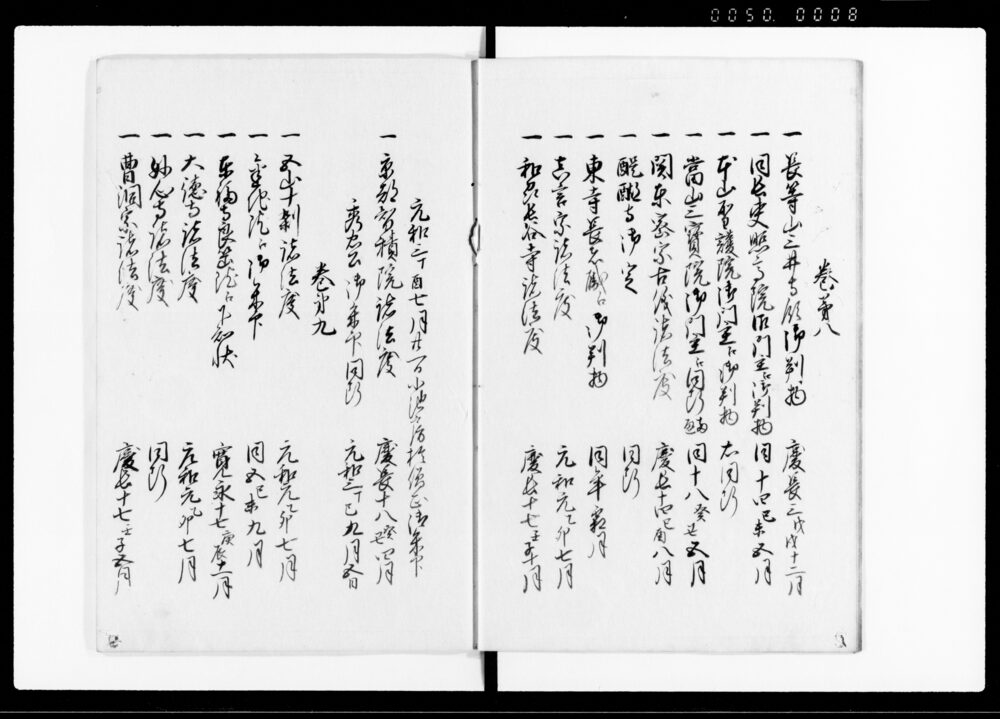 0050.0008
巻第八
一 長等山三井寺領御判物 慶長三戊戌十二月
一 同長吏照高院御門主江御判物 同十四己未五月
一 本山聖護院御門主江御判物 右同断
一 當山三寶院御門主江同断 同十八癸丑五月
一 関東真言宗古義諸法度 慶長十四己酉八月
一 醍醐寺御定 同断
一 東寺長者職江御判物 同年霜月
一 真言宗諸法度 元和元乙卯七月
一 和州長谷寺諸法度 慶長十七壬子十月
元和三丁酉七月廿一日小池坊権僧正御朱印
一 京都智積院諸法度 慶長十八癸丑四月
秀忠公御朱印同断 元和三丁巳九月五日
巻第九
一 五山十刹諸法度 元和元乙卯七月
一 金地院江御朱印 同五己未九月
一 東福寺良岳院江下知状 寛永十七庚辰十二月
一 大徳寺諸法度 元和元乙卯七月
一 妙心寺諸法度 同断
一 曹洞宗諸法度 慶長十七壬子五月